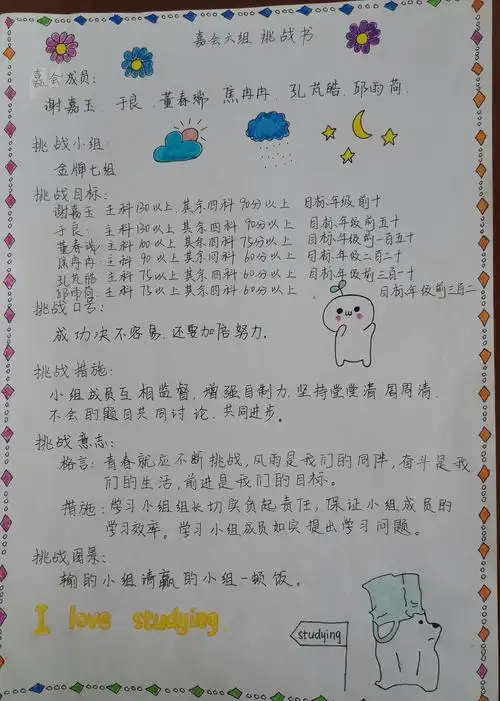 嘉会六组 挑战书
嘉会成员：
谢嘉玉、于良、董春瑞、焦冉冉、孔芃皓、邱雨荷、
挑战小组：
金牌七组
挑战目标：
谢嘉玉 主科130以上，其余四科90分以上 目标年级前十
于良： 主科130以上，其余四科90分以上 目标年级前五十
董春瑞 主科100以上，其余四科75分以上 目标、年级前一百五十
焦冉冉 主科90以上，其余四科60分以上 目标、年级二百二十
孔芃皓 主科75以上，其余四科60分以上 目标、年级前三百一十
邱雨荷 主科75以上，其余四科60分以上 目标、年级前三百二
挑战口号：
成功决不容易，还要加倍努力．
挑战措施：
小组成员互相监督，增强自制力，坚持堂堂清，周周清，
不会的题目共同讨论，共同进步。
挑战意志：
格言：青春就应不断挑战，风雨是我们的同伴，奋斗是我
们的生活，前进是我们的目标。
措施：学习小组组长切实负起责任，保证小组成员的
学习效率。学习小组成员如实提出学习问题。
挑战图景：
输的小组请赢的小组一顿饭。
I love studying
studying